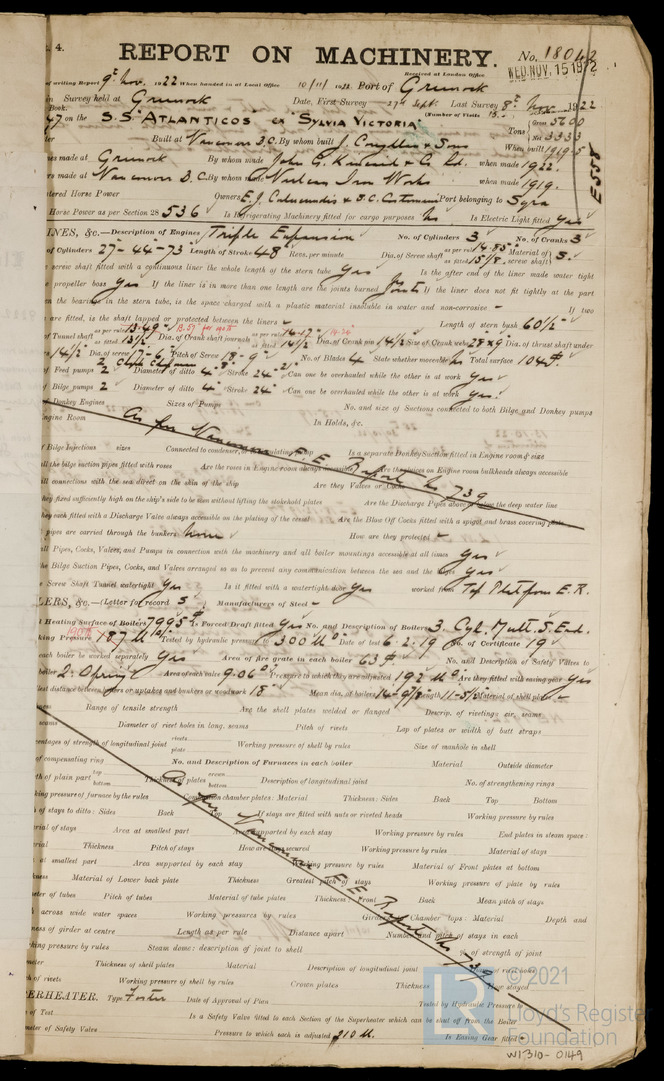 t. 4. REPORT ON MACHINERY. No. 18042
Received at London Office WED. NOV. 15 1922
of writing Report 9th Nov. 1922 When handed in at Local Office 10/11/1922 Port of Greenock
in Survey held at Greenock Date, First Survey 27th Sept. Last Survey 8th Nov. 1922
Book. (Number of Visits
47 on the S.S ATLANTICOS ex "SYLVIA VICTORIA" Tons Gross 5600 Net 3333
Built at Vancouver B.C. By whom built J. Coughlan & Sons When built 1919-5
nes made at Greenock By whom made John G. Kincaid & Co. Ld. when made 1922.
rs made at Vancouver B.C. By whom made Vulcan Iron Works when made 1919.
tered Horse Power Owners Port belonging to Syra
Horse Power as per Section 28 536 Is Refrigerating Machinery fitted for cargo purposes No. Is Electric Light fitted Yes
E3558
INES, &c.—Description of Engines Triple Expansion No. of Cylinders 3 No. of Cranks 3
of Cylinders 27-44-73 Length of Stroke 48 Revs. per minute Dia. of Screw shaft as per rule 14.85 as fitted 15 1/8 Material of screw shaft S.
screw shaft fitted with a continuous liner the whole length of the stern tube Yes Is the after end of the liner made water tight
e propeller boss Yes If the liner is in more than one length are the joints burned Joints If the liner does not fit tightly at the part
n the bearings in the stern tube, is the space charged with a plastic material insoluble in water and non-corrosive - If two
are fitted, is the shaft lapped or protected between the liners - Length of stern bush 60 1/2"
of Tunnel shaft as per rule 13.49 as fitted 13 1/2 Dia. of Crank shaft journals as per rule 14.17 as fitted 14 1/2 Dia. of Crank pin 14 1/2 Size of Crank webs 28 x 9 Dia. of thrust shaft under
rs 14 1/2 Dia. of screw 17-6 Pitch of Screw 18-9 No. of Blades 4 State whether moveable No Total surface 104
of Feed pumps 2 Diameter of ditto 4" Stroke 24" Can one be overhauled while the other is at work Yes
f Bilge pumps 2 Diameter of ditto 4" Stroke 24" Can one be overhauled while the other is at work Yes.
f Donkey Engines Sizes of Pumps No. and size of Suctions connected to both Bilge and Donkey pumps
Engine Room In Holds, &c.
As per Vancouver F.E. Report No 739
f Bilge Injections sizes Connected to condenser, or to circulating pump Is a separate Donkey Suction fitted in Engine room & size
all the bilge suction pipes fitted with roses Are the roses in Engine room always accessible Are the sluices on Engine room bulkheads always accessible
all connections with the sea direct on the skin of the ship Are they Valves or Cocks
hey fixed sufficiently high on the ship's side to be seen without lifting the stokehold plates Are the Discharge Pipes above or below the deep water line
hey each fitted with a Discharge Valve always accessible on the plating of the vessel Are the Blow Off Cocks fitted with a spigot and brass covering plate
pipes are carried through the bunkers None How are they protected -
ll Pipes, Cocks, Valves, and Pumps in connection with the machinery and all boiler mountings accessible at all times Yes
he Bilge Suction Pipes, Cocks, and Valves arranged so as to prevent any communication between the sea and the bilges Yes
e Screw Shaft Tunnel watertight Yes Is it fitted with a watertight door Yes worked from Top Platform E.R.
LERS, &c.—(Letter for record S. Manufacturers of Steel -
l Heating Surface of Boilers 7995 Is Forced Draft fitted Yes No. and Description of Boilers 3. Cyl. Mult. S. End.
king Pressure 187 Tested by hydraulic pressure to 300 Date of test 6.2.19 No. of Certificate 19
each boiler be worked separately Yes Area of fire grate in each boiler 63 No. and Description of Safety Valves to
boiler 2. Spring Area of each valve 9.06 Pressure to which they are adjusted 192 Are they fitted with easing gear Yes
llest distance between boilers or uptakes and bunkers or woodwork 18" Mean dia. of boilers 14-9 1/8 Length 11-5 1/2 Material of shell plates -
Range of tensile strength Are the shell plates welded or flanged Descrip. of riveting: cir. seams
seams Diameter of rivet holes in long. seams Pitch of rivets Lap of plates or width of butt straps
centages of strength of longitudinal joint rivets plate Working pressure of shell by rules Size of manhole in shell
of compensating ring No. and Description of Furnaces in each boiler Material Outside diameter
th of plain part top bottom Thickness of plates crown bottom Description of longitudinal joint No. of strengthening rings
king pressure of furnace by the rules Combustion chamber plates: Material Thickness: Sides Back Top Bottom
of stays to ditto: Sides Back Top If stays are fitted with nuts or riveted heads Working pressure by rules
rial of stays Area at smallest part Area supported by each stay Working pressure by rules End plates in steam space:
rial Thickness Pitch of stays How are stays secured Working pressure by rules Material of stays
at smallest part Area supported by each stay Working pressure by rules Material of Front plates at bottom
kness Material of Lower back plate Thickness Greatest pitch of stays Working pressure of plate by rules
eter of tubes Pitch of tubes Material of tube plates Thickness: Front Back Mean pitch of stays
across wide water spaces Working pressures by rules Girders to Chamber tops: Material Depth and
ness of girder at centre Length as per rule Distance apart Number and pitch of stays in each
king pressure by rules Steam dome: description of joint to shell % of strength of joint
meter Thickness of shell plates Material Description of longitudinal joint
h of rivets Working pressure of shell by rules Crown plates Thickness How stayed
As per Vancouver F.E. Report No 739
ERHEATER. Type Foster Date of Approval of Plan Tested by Hydraulic Pressure to
e of Test Is a Safety Valve fitted to each Section of the Superheater which can be shut off from the Boiler
meter of Safety Valve Pressure to which each is adjusted 210 Is Easing Gear fitted
LR © 2021
Lloyd's Register
Foundation
W1310-0149